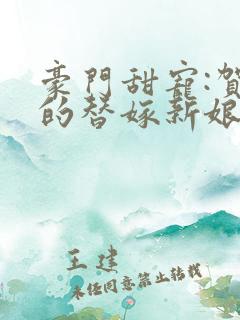 豪門甜寵:賀
的替嫁新娘
王建
未经同意禁止转载